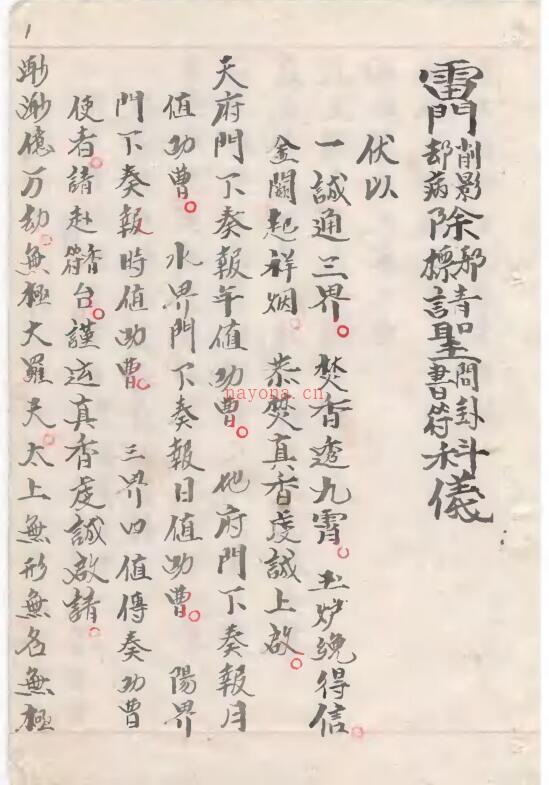 雷門削影却病除邪標請聖問卦書符科儀
伏以
一誠通三界。焚香透九霄。玉炉才得信。
金闕起祥烟 恭焚真香虔誠上啟。
天府門下奏報年值功曹。地府門下奏報月
值功曹。水界門下奏報日值功曹。陽界
門下奏報時值功曹。三界四值傳奏功曹
使者。請赴香筵台。謹運真香虔誠啟請。
渺渺億万劫。無極大羅天。太上無形無名無極
1
nayona.cn